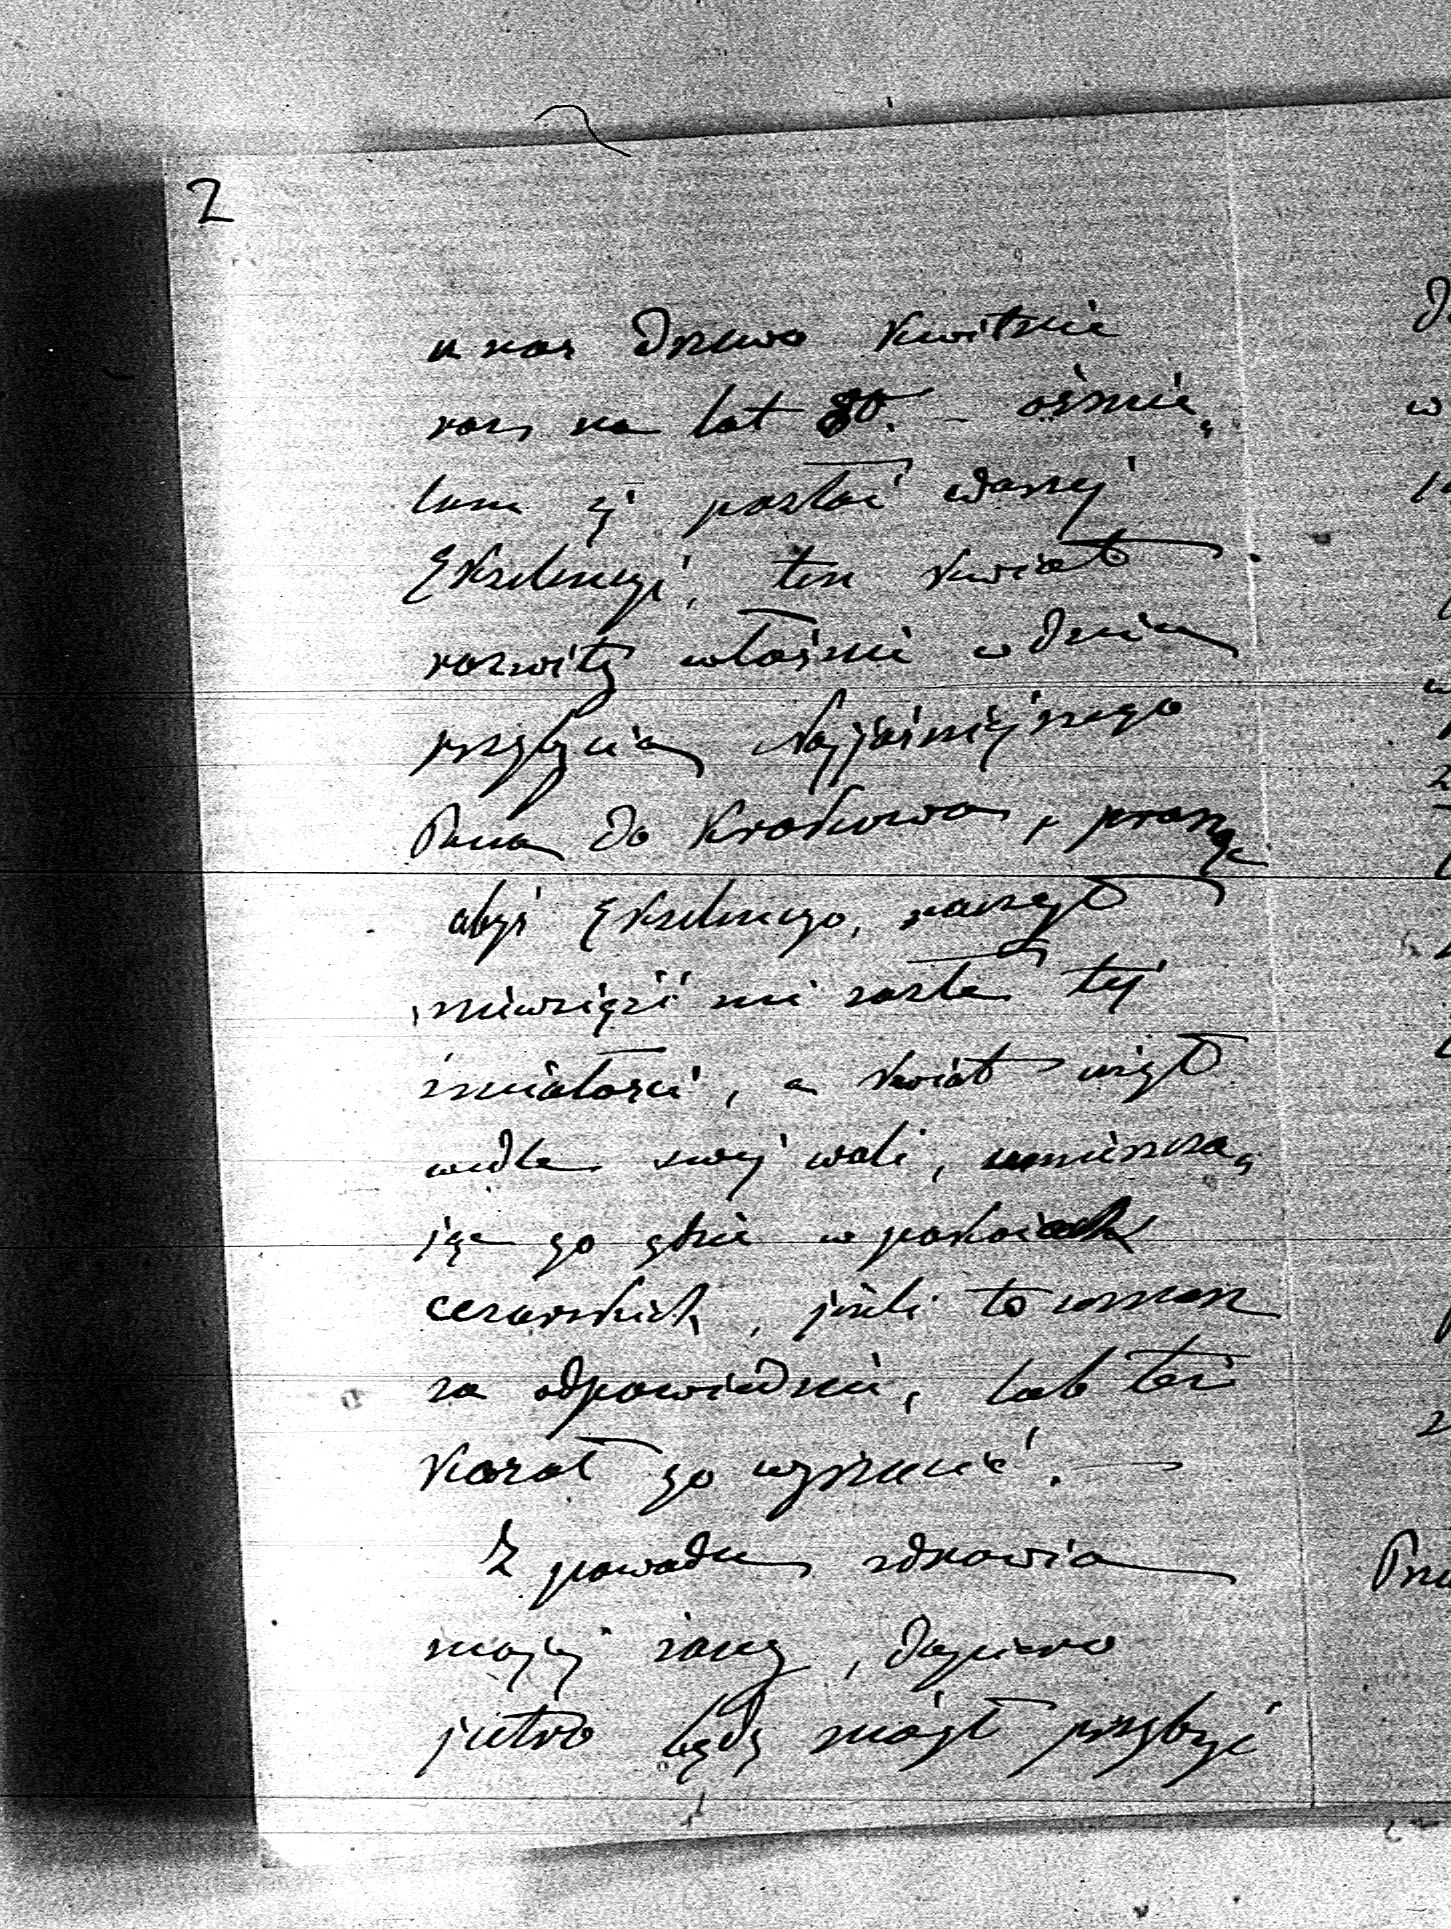 2
u nas drzewo kwitnie
raz na lat 80. – ośmie,
lam się posłać Waszej
Ekscelencyi, ten kwiat
rozwity właśnie w dniu
przybycia Najjaśniejszego
Pana do Krakowa, prosząc
abyś Ekscelencyo, raczył
niewziąść mi za złe tej
śmiałości, a kwiat użył
wedle swej woli, umieszcza,
jąc go gdzie w pokoiach
cesarskich, jeźli to uznasz
za odpowiednie, lub też
kazał go wyrzucić. —
Z powodu zdrowia
mojej żony, dopiero
jutro będę mógł przybyć